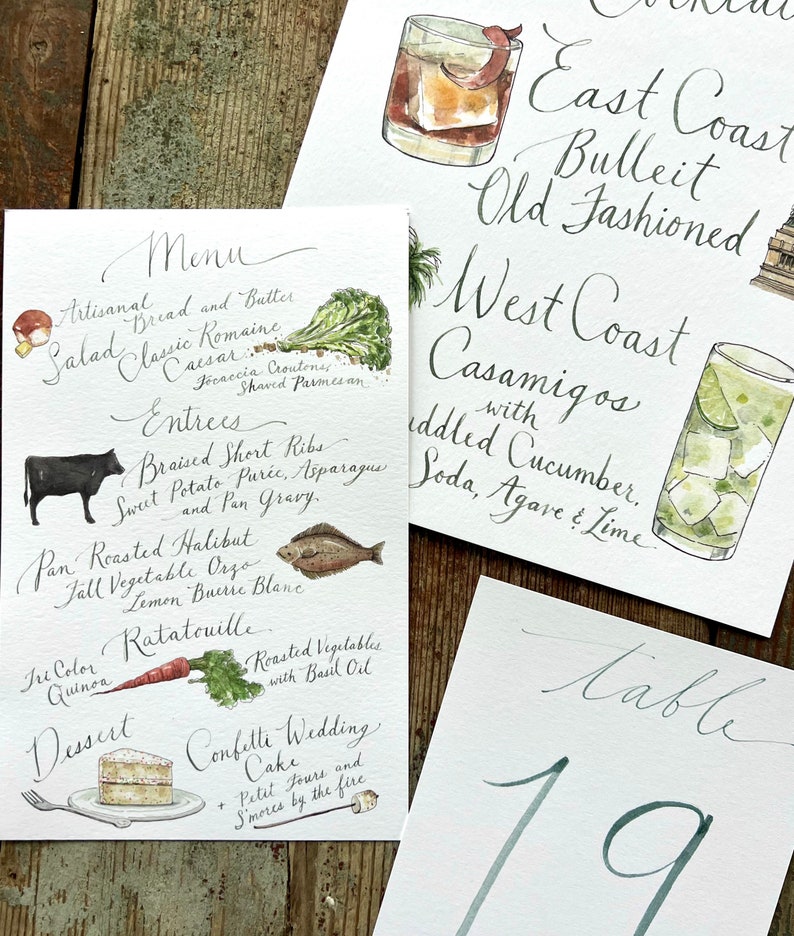 Menu
Artisanal
Bread and Butter
Salad
Classic Romaine
Caesar
Focaccia Croutons,
Shaved Parmesan
Entrees
Braised Short Ribs
Sweet Potato Purée, Asparagus
and Pan Gravy.
Pan Roasted Halibut
Fall Vegetable Orzo
Lemon Buerre Blanc
Ratatouille
Tri Color
Quinoa
Roasted Vegetables
with Basil Oil
Dessert
Confetti Wedding
Cake
+ Petit Fours and
S'mores by the fire
Cocktai
East Coast
Bulleit
Old Fashioned
West Coast
Casamigos
with
uddled Cucumber,
Soda, Agave & Lime
table
19